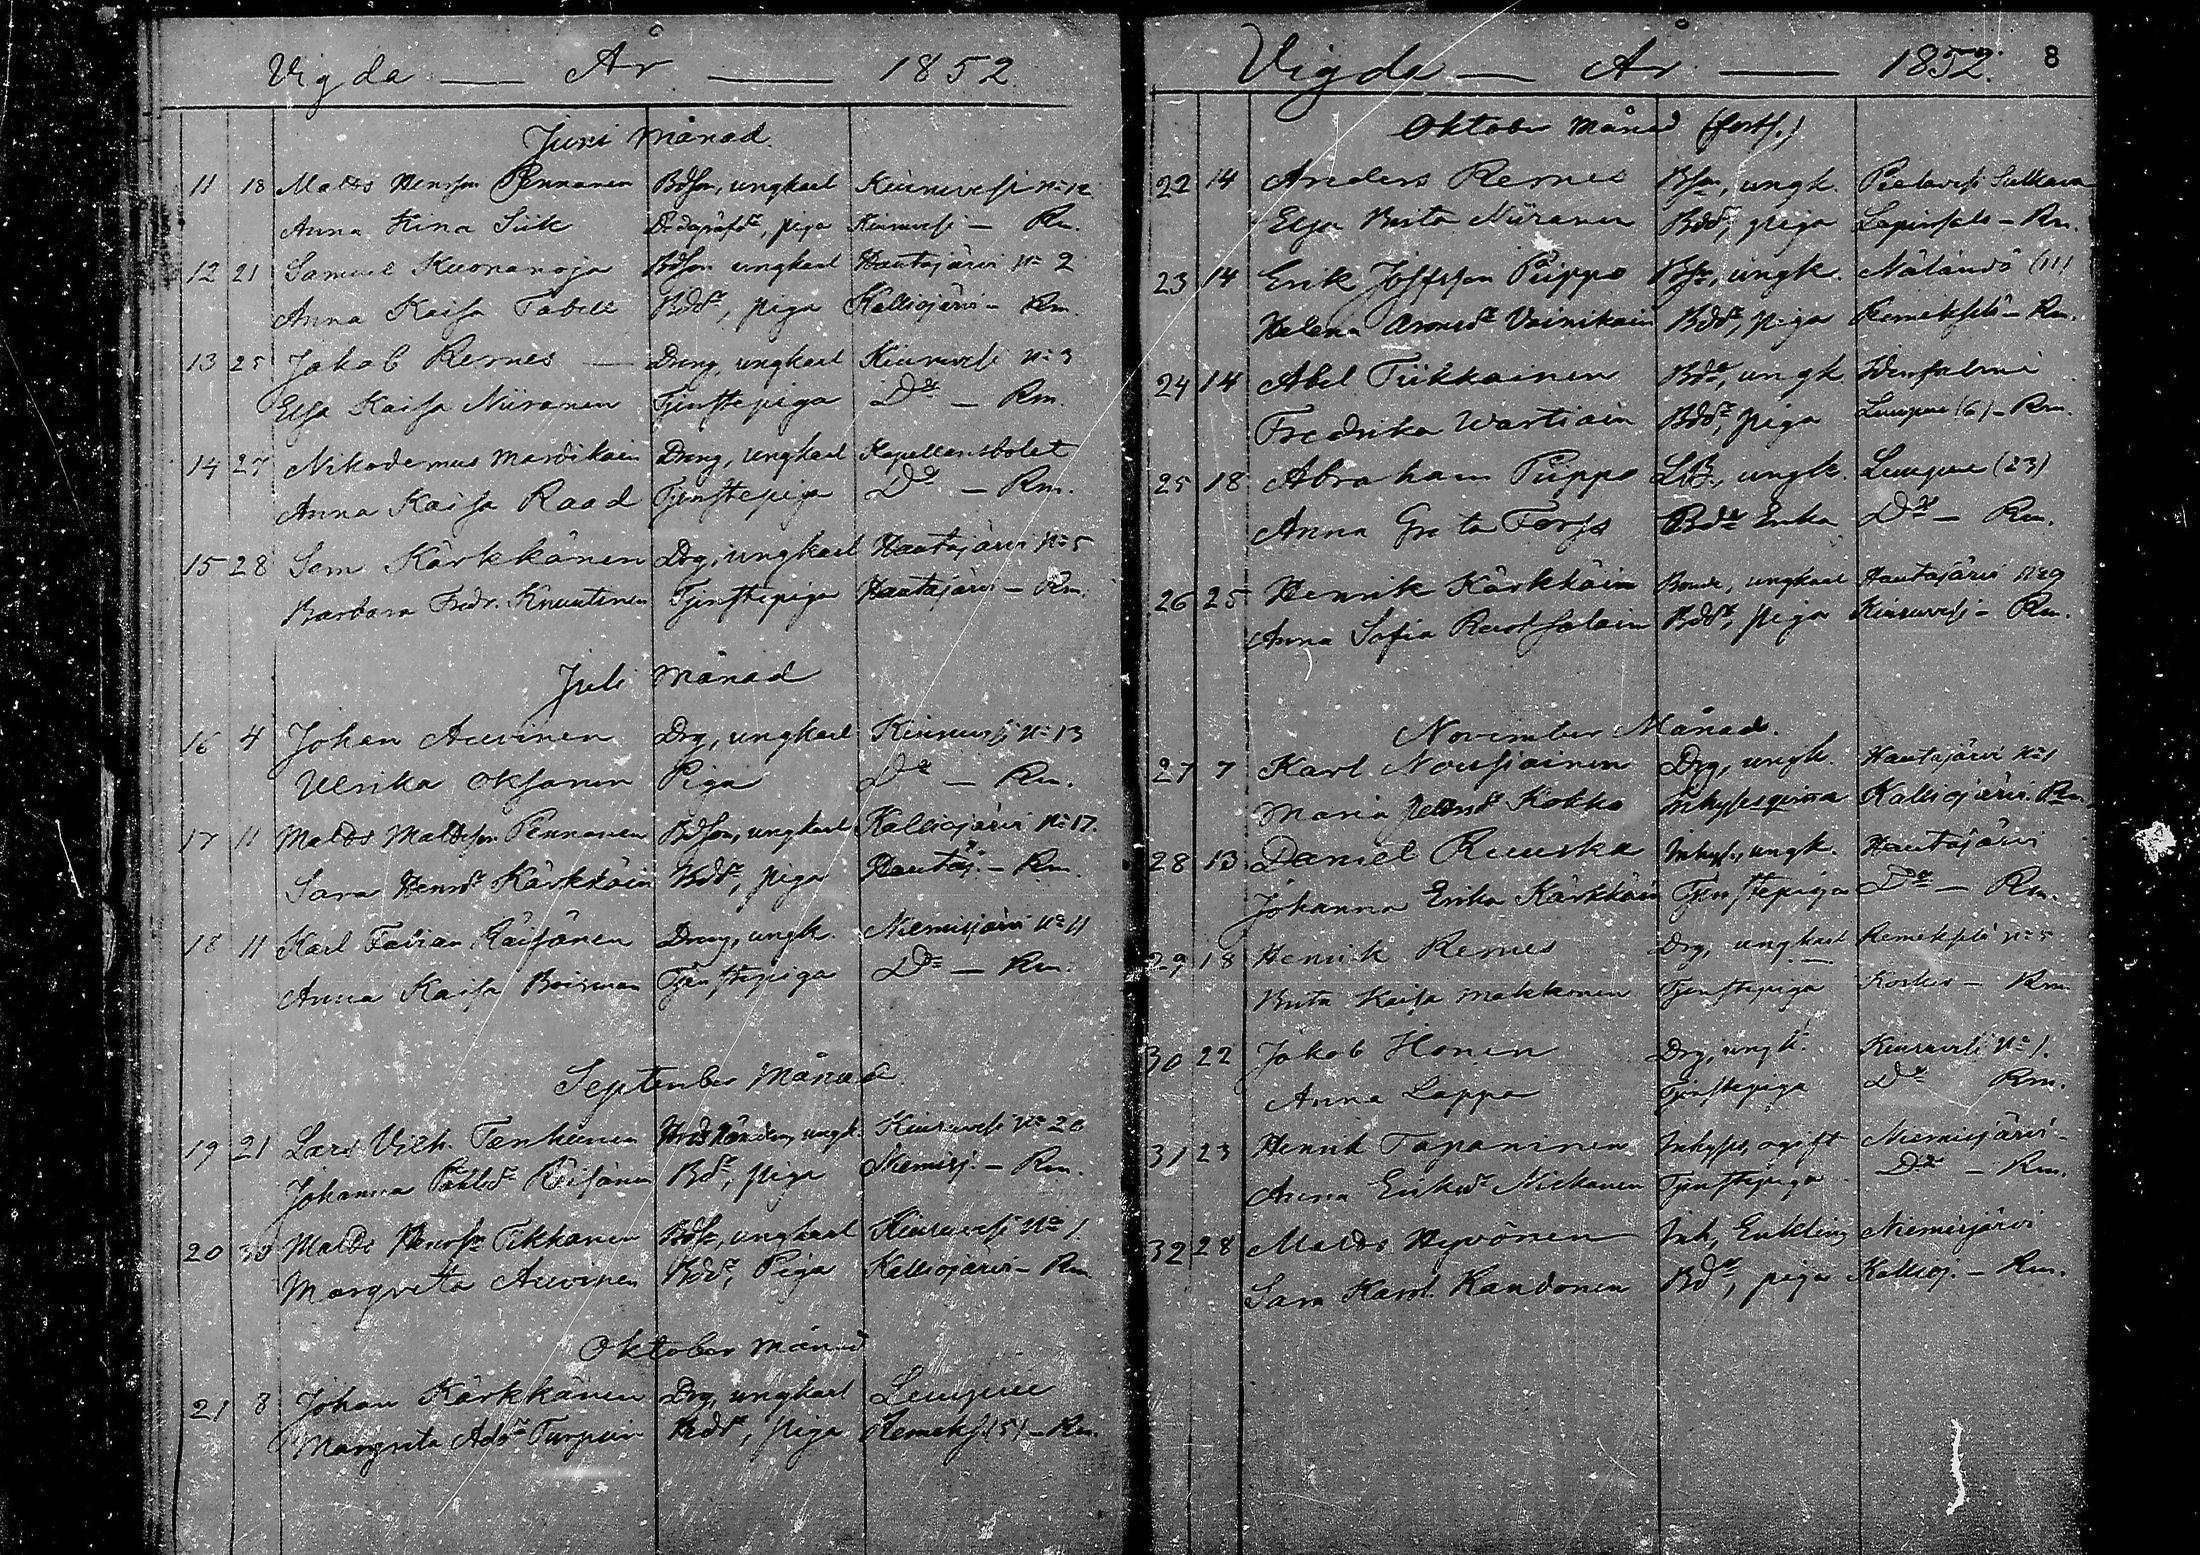 Vigda — År — 1852.
Juni månad.
11 18 Matts Henrsson Pennanen Bdson, ungkarl Kiuruvesi No 12.
Anna Stina Siik piga Kiuruvesi — Rm.
12 21 Samuel Kuonanoja Bdson ungkarl Hautajärvi No 2
Anna Kaisa Tabell Bddr, piga Kalliojärvi — Rm.
13 25 Jakob Remes — Dräng, ungkarl Kiuruvesi No 3
Elsa Kaisa Niiranen Tjenstepiga Do — Rm.
14 27 Nikodemus Mardikain Dräng, ungkarl Kapellansbolet
Anna Kaisa Raad Tjenstepiga Do — Rm.
15 28 Sem Kärkkänen Drg, ungkarl Hautajärvi No 5
Barbara Fredr. Knuutinen Tjenstepiga Hautajärvi — Rm.
Juli månad
16 4 Johan Auvinen Drg, ungkarl Kiuruvesi No 13
Ulrika Oksanen Piga Do — Rm.
17 11 Matts Mattsson Pennanen Bdson, ungkarl Kalliojärvi No 17.
Sara Henrsdr Kärkkäin Bddr, piga Hautaj. — Rm.
18 11 Karl Fabian Räisänen Dräng, ungk. Niemisjärvi No 11
Anna Kaisa Boisman Tjenstepiga Do — Rm.
September Månad.
19 21 Lars Vilh. Tenhunen ungk. Kiuruvesi No 20
Johanna Pålsdr Räisänen Bdr, piga Niemisj. — Rm.
20 30 Matts Henrsson Tikkanen Bds, ungkarl Kiuruvesi No 1.
Margreta Auvinen Bddr, Piga Kalliojärvi — Rm.
Oktober månad
21 8 Johan Kärkkänen Drg, ungkarl Luupuu
Margreta Adsdr Turpein Bddr, piga Remeksj. (5) — Rm.
Vigda — År — 1852. 8
Oktober Månad (forts.)
22 14 Anders Remes Bson, ungk. Pielavesi Sulkava
Elsa Brita Niiranen Bddr, piga Lapinsalo — Rm.
23 14 Erik Josefsson Piippo Bson, ungk. Näläntö (11)
Helena Aronsdr Vainikain Bddr, piga Remekselä — Rm.
24 14 Abel Tiikkainen ungk. Idensalmi
Fredrika Wartiain Bddr, piga Luupuu (6) — Rm.
25 18 Abraham Piippo LB, ungk. Luupuu (23)
Anna Greta Forss Enka Do — Rm.
26 25 Henrik Kärkkäin Bonde, ungkarl Hautajärvi No 9
Anna Sofia Ruotsalain Bddr, piga Kiuruvesi — Rm.
November Månad.
27 7 Karl Nousiainen Drg, ungk. Hautajärvi No 1
Maria Kokko Inhysesqvinna Kalliojärvi. Rm.
28 13 Daniel Ruuska Inhys, ungk. Hautajärvi
Johanna Erika Kärkkäin Tjenstepiga Do — Rm.
29 18 Henrik Remes Drg, ungkarl Remekselä No 5
Brita Kaisa Makkonen Tjenstepiga Koskis — Rm
30 22 Jakob Honen Drg, ungk. Kiuruvesi No 1.
Anna Lappe Tjenstepiga Do Rm.
31 23 Henrik Tapaninen Inhyses, ogift Niemisjärvi
Anna Eriksdr Niskanen Tjenstepiga Do — Rm.
32 28 Matts Hyvönen Inh, Enkling Niemisjärvi
Sara Karol. Kandonen Bdr, piga Kallioj. — Rm.